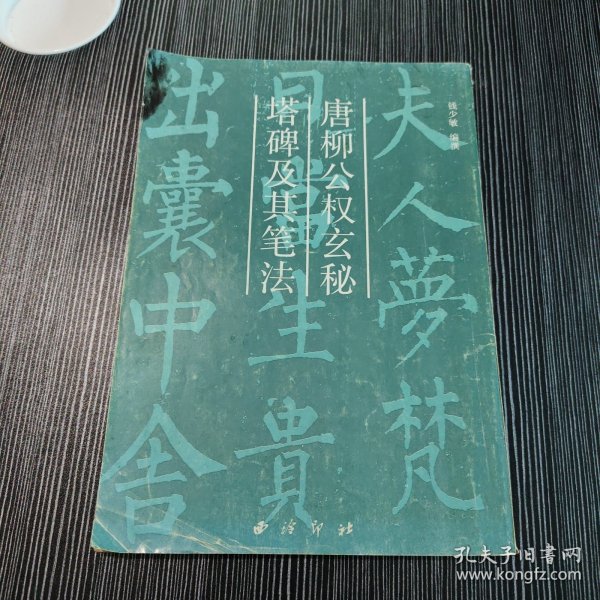 唐柳公权玄秘
塔碑及其笔法
钱少敏 编撰
夫人梦梵
曰当生贵
出囊中舍
西泠印社
孔夫子旧书网
www.kongfz.com